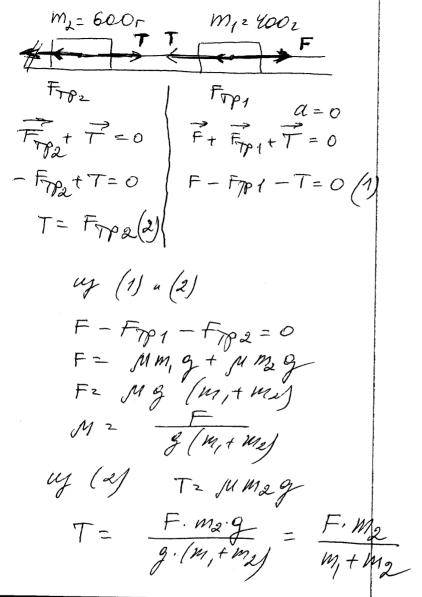 m₂ = 600г m₁ = 400г
T T F
Fтр₂ Fтр1
a = 0
Fтр₂ + T = 0 F + Fтр1 + T = 0
- Fтр₂ + T = 0 F - Fтр1 - T = 0 (1)
T = Fтр2 (2)
из (1) и (2)
F - Fтр1 - Fтр2 = 0
F = μm₁g + μm₂g
F = μg (m₁ + m₂)
μ = F / g(m₁ + m₂)
из (2) T = μm₂g
T = F · m₂ · g / g · (m₁ + m₂) = F · m₂ / m₁ + m₂